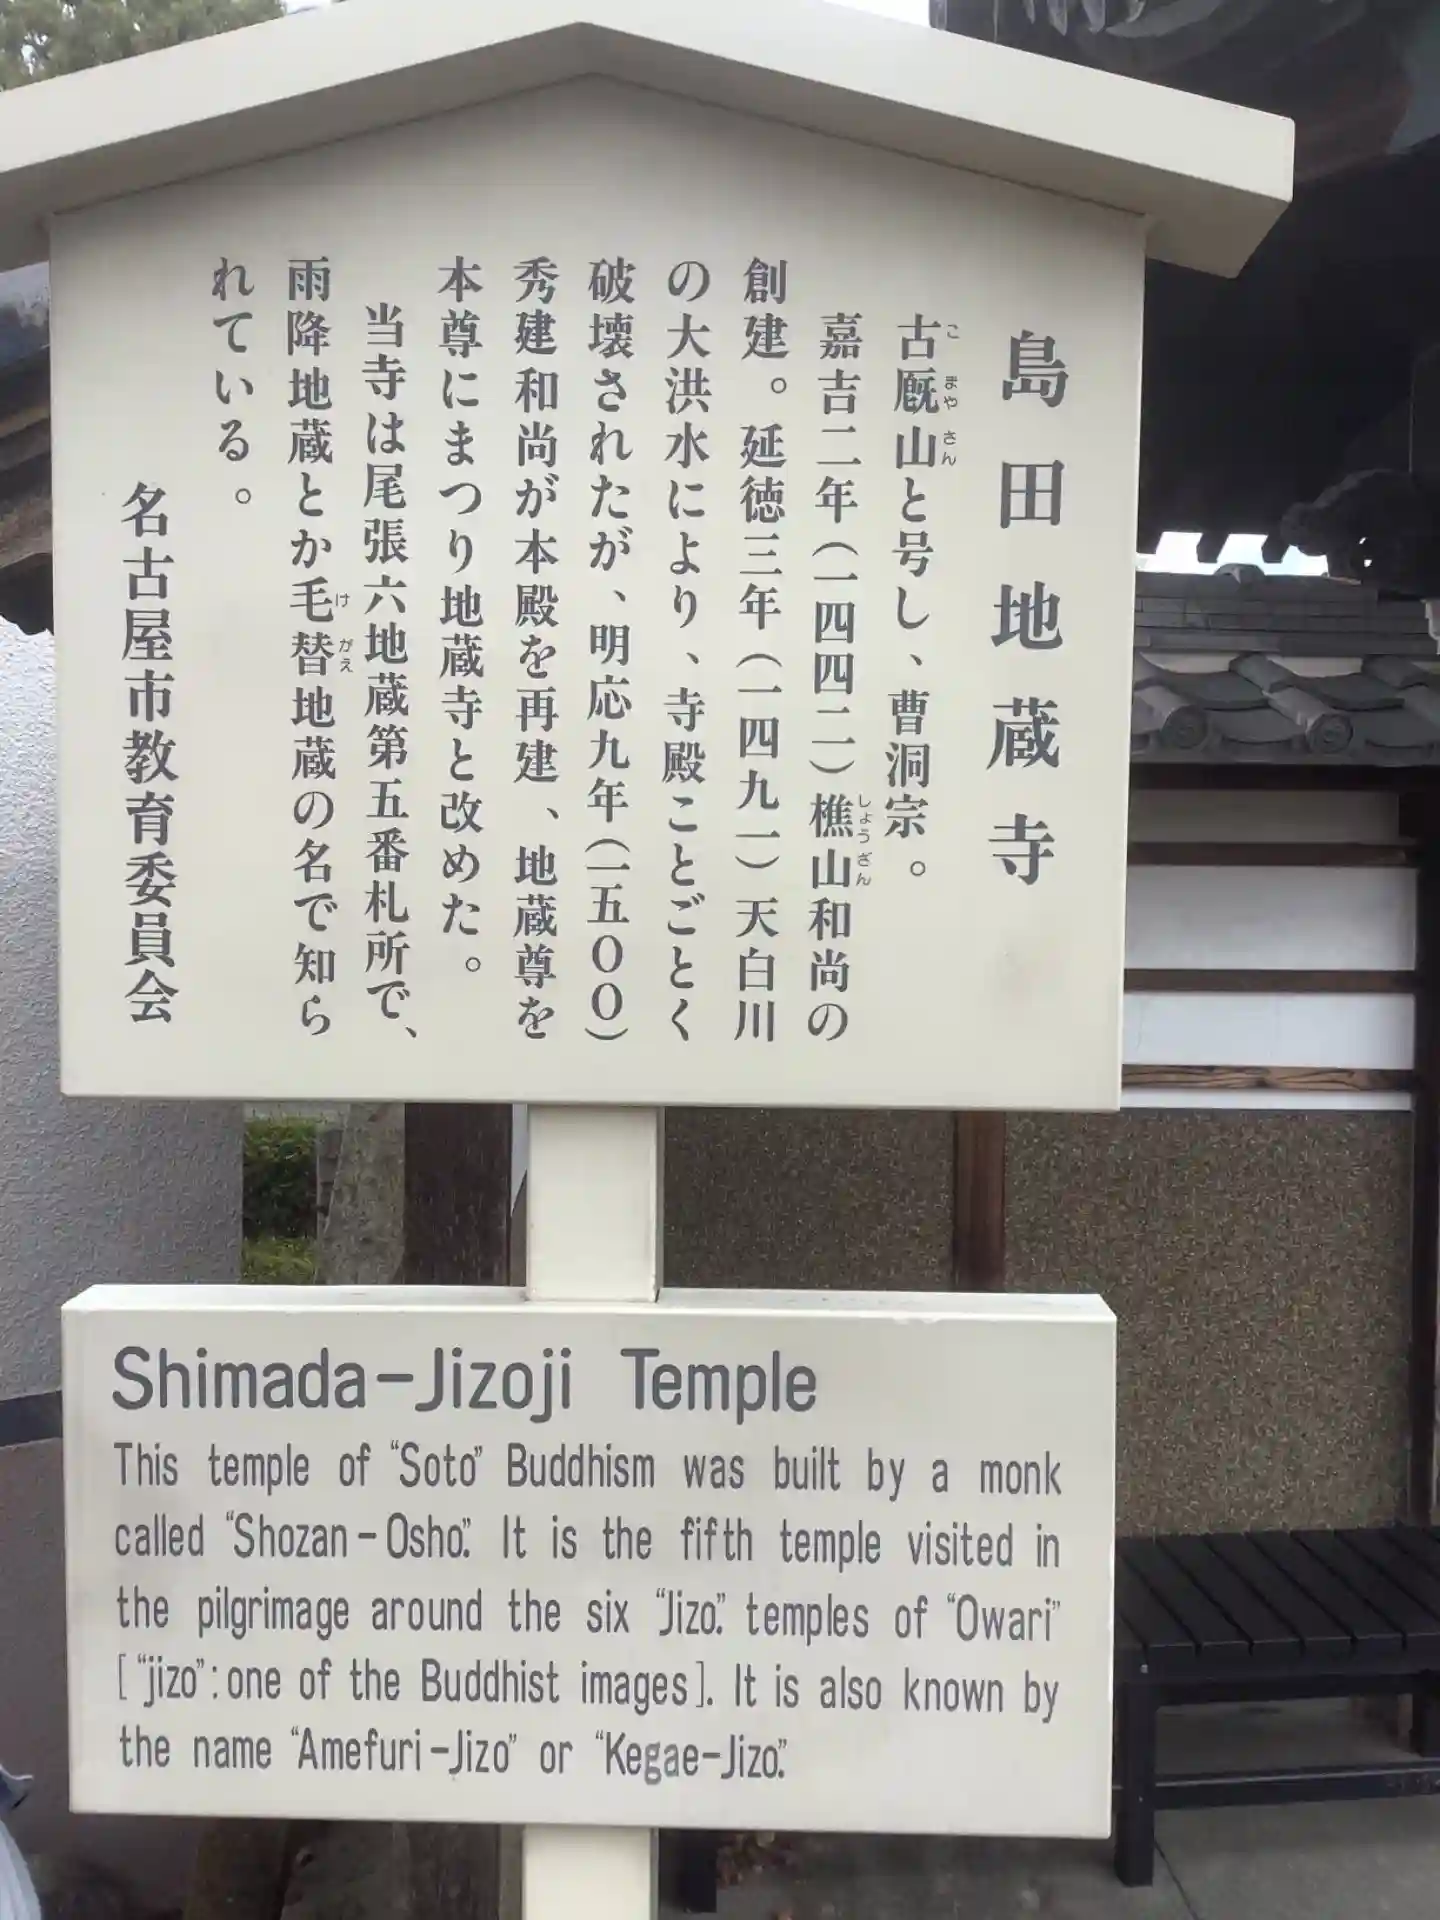 島田地蔵寺
古厩山と号し、曹洞宗。
こまやさん
嘉吉二年(一四四二)樵山和尚の
しょうざん
創建。延徳三年(一四九一)天白川
の大洪水により、寺殿ことごとく
破壊されたが、明応九年(一五〇〇)
秀建和尚が本殿を再建、地蔵尊を
本尊にまつり地蔵寺と改めた。
当寺は尾張六地蔵第五番札所で、
雨降地蔵とか毛替地蔵の名で知ら
けがえ
れている。
名古屋市教育委員会
Shimada-Jizoji Temple
This temple of “Soto” Buddhism was built by a monk
called “Shozan-Osho”. It is the fifth temple visited in
the pilgrimage around the six “Jizo.” temples of “Owari”
[“jizo”:one of the Buddhist images]. It is also known by
the name “Amefuri-Jizo” or “Kegae-Jizo”.